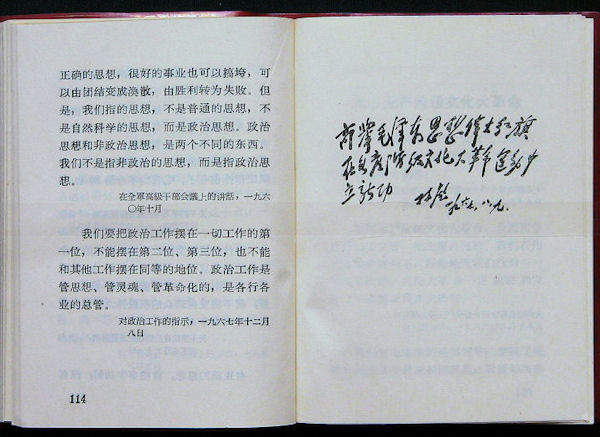 正确的思想，很好的事业也可以搞垮，可
以由团结变成涣散，由胜利转为失败。但
是，我们指的思想，不是普通的思想，不
是自然科学的思想，而是政治思想。政治
思想和非政治思想，是两个不同的东西。
我们不是指非政治的思想，而是指政治思
想。
在全軍高級干部会議上的讲話，一九六
〇年十月
我们要把政治工作摆在一切工作的第
一位，不能摆在第二位、第三位，也不能
和其他工作摆在同等的地位。政治工作是
管思想、管灵魂、管革命化的，是各行各
业的总管。
对政治工作的指示，一九六七年十二月
八日
114
高举毛泽东思想伟大红旗
在无产阶级文化大革命运动中
立新功 林彪 一九六七、八、九。